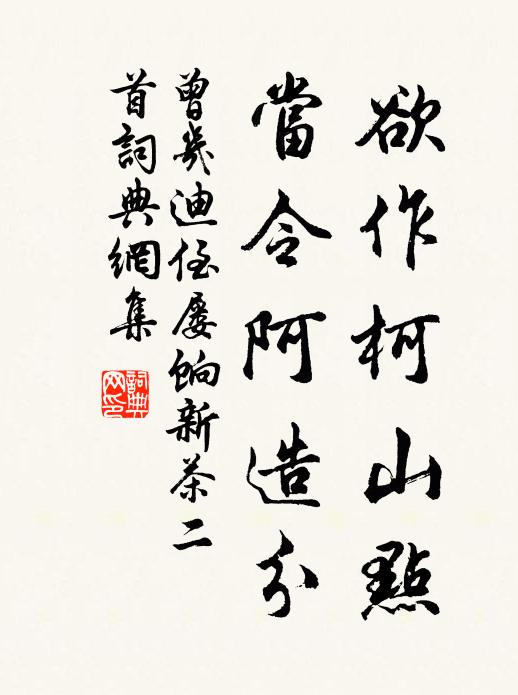 欲作柯山點
當令阿造分
曾幾迪侄屡餉新茶二
首詞典網集
詞典
网印